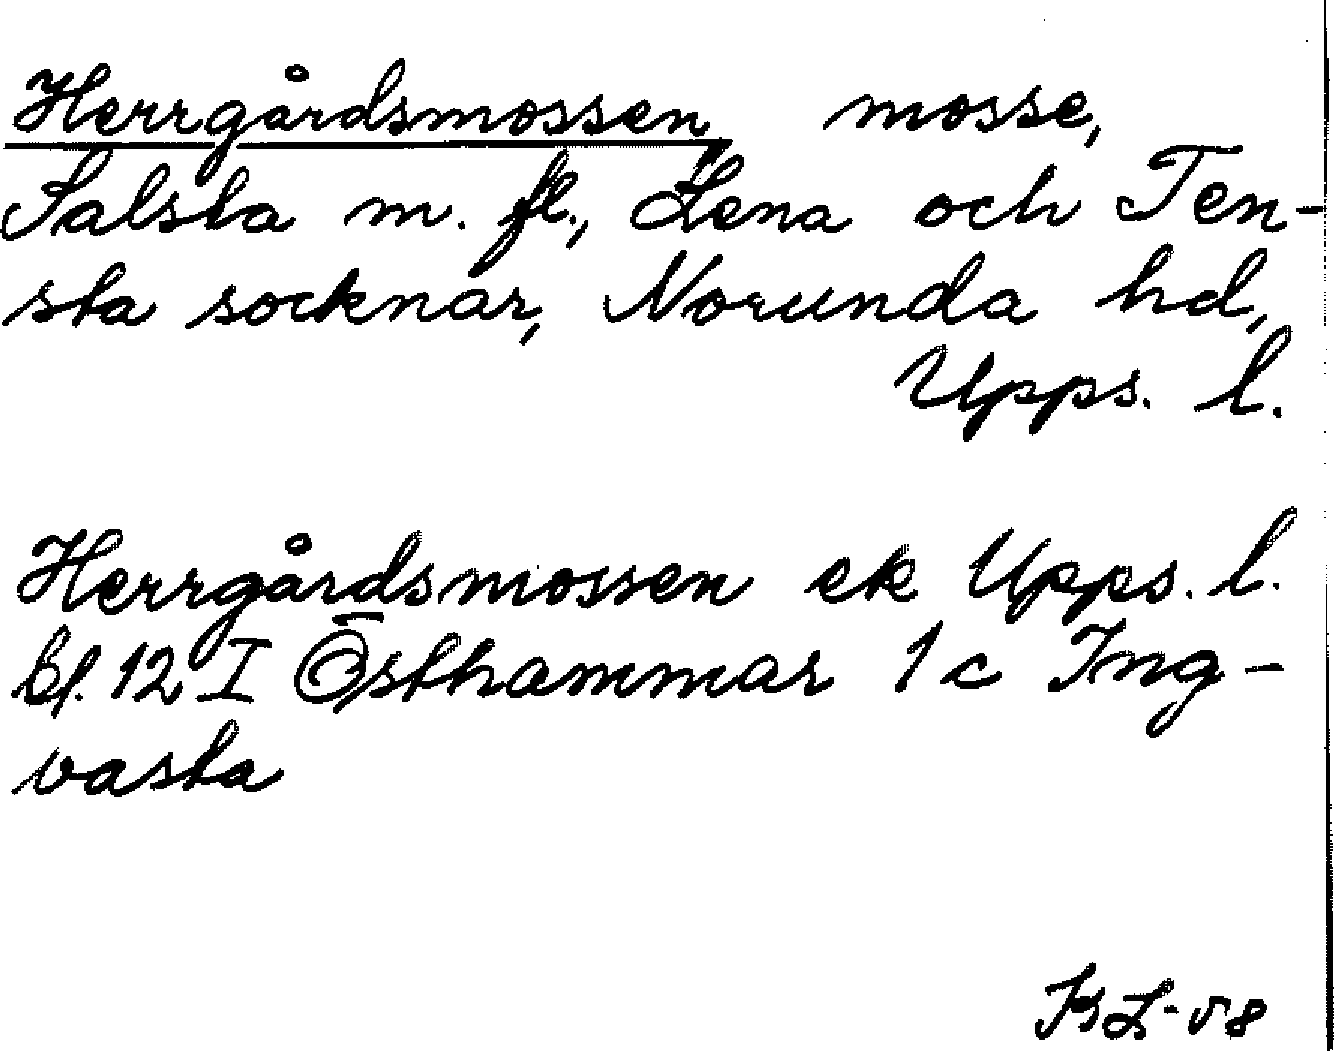 Herrgårdsmossen, mosse,
Salsta m. fl., Lena och Ten-
sta socknar, Norunda hd,
Upps. l.
Herrgårdsmossen ek Upps. l.
bl. 12 I Östhammar 1 c Ing-
vasta